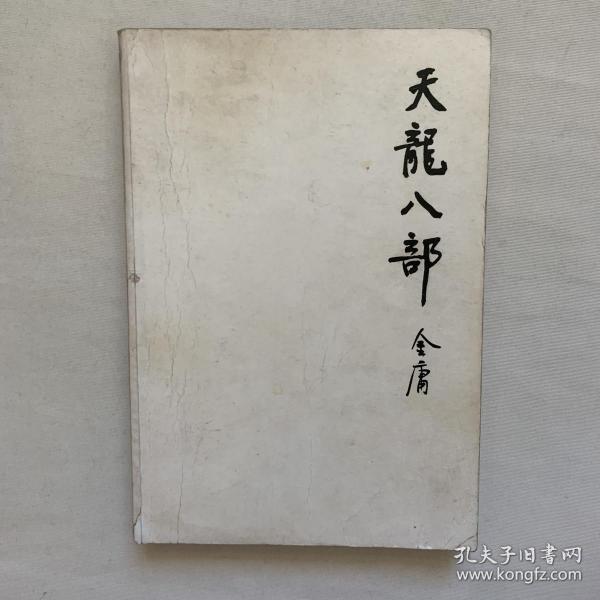 天龍八部
金庸
孔夫子旧書网
www.kongfz.com